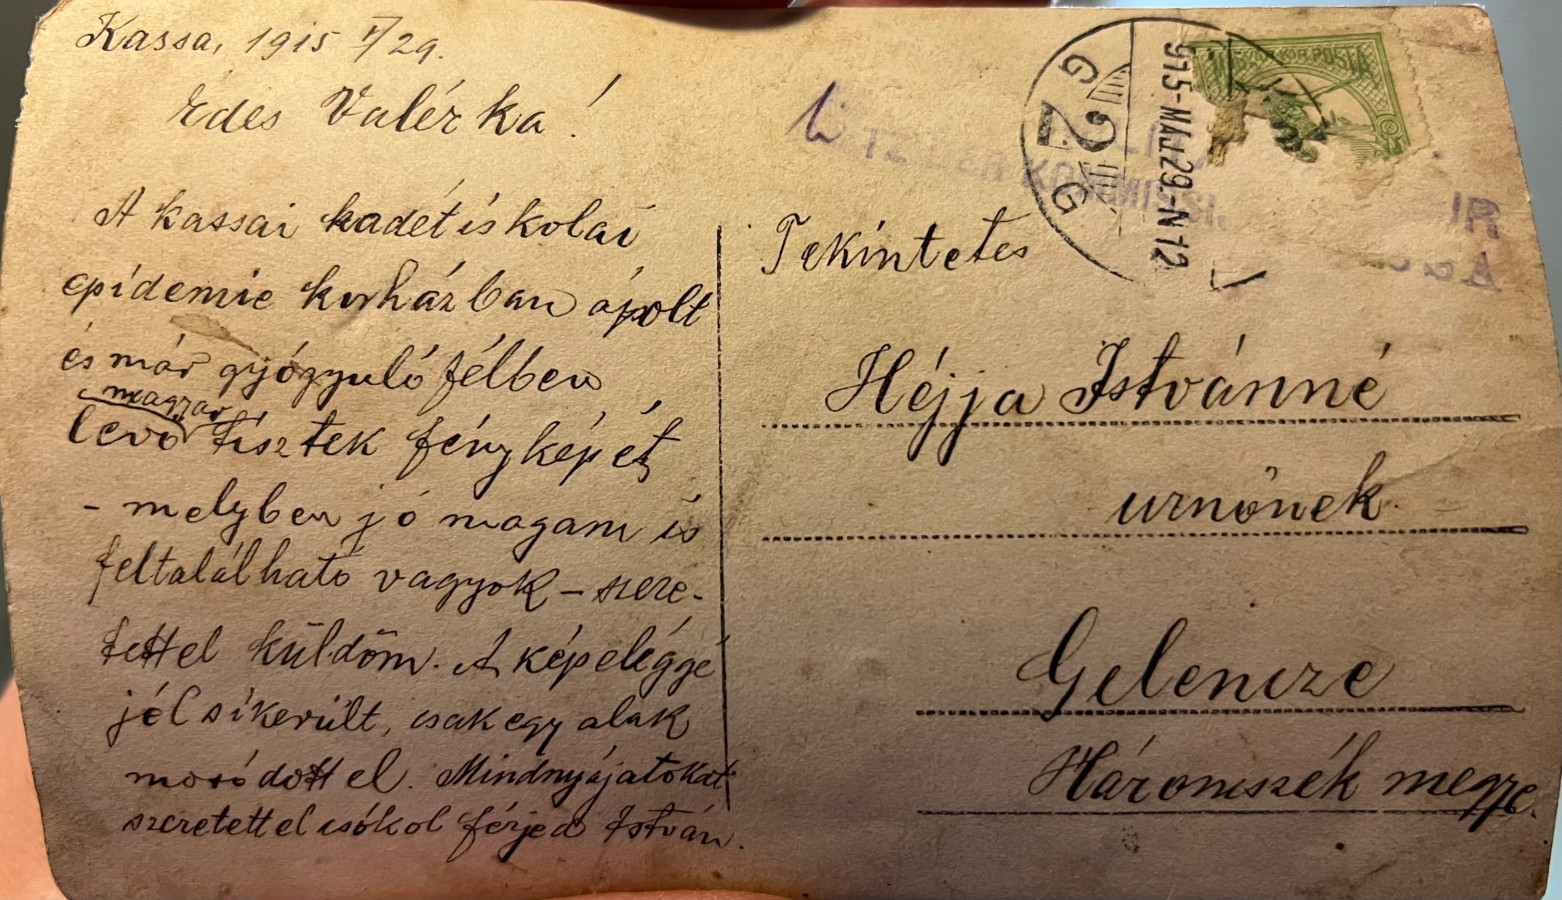 Kassa, 1915 V/29.
Édes Valérka!
A kassai kadétiskolai
epidemie korházban ápolt
és már gyógyuló félben
levő magyar tisztek fényképét
- melyben jó magam is
feltalálható vagyok - szere-
tettel küldöm. A kép eléggé
jól sikerült, csak egy alak
mosódott el. Mindnyájatokat
szeretettel csókol férjed István.
MAGYAR KIR. POSTA
915-MÁJ.29.-N12
G 2 G
Tekintetes
Héjja Istvánné
urnőnek
Gelencze
Háromszék megye.